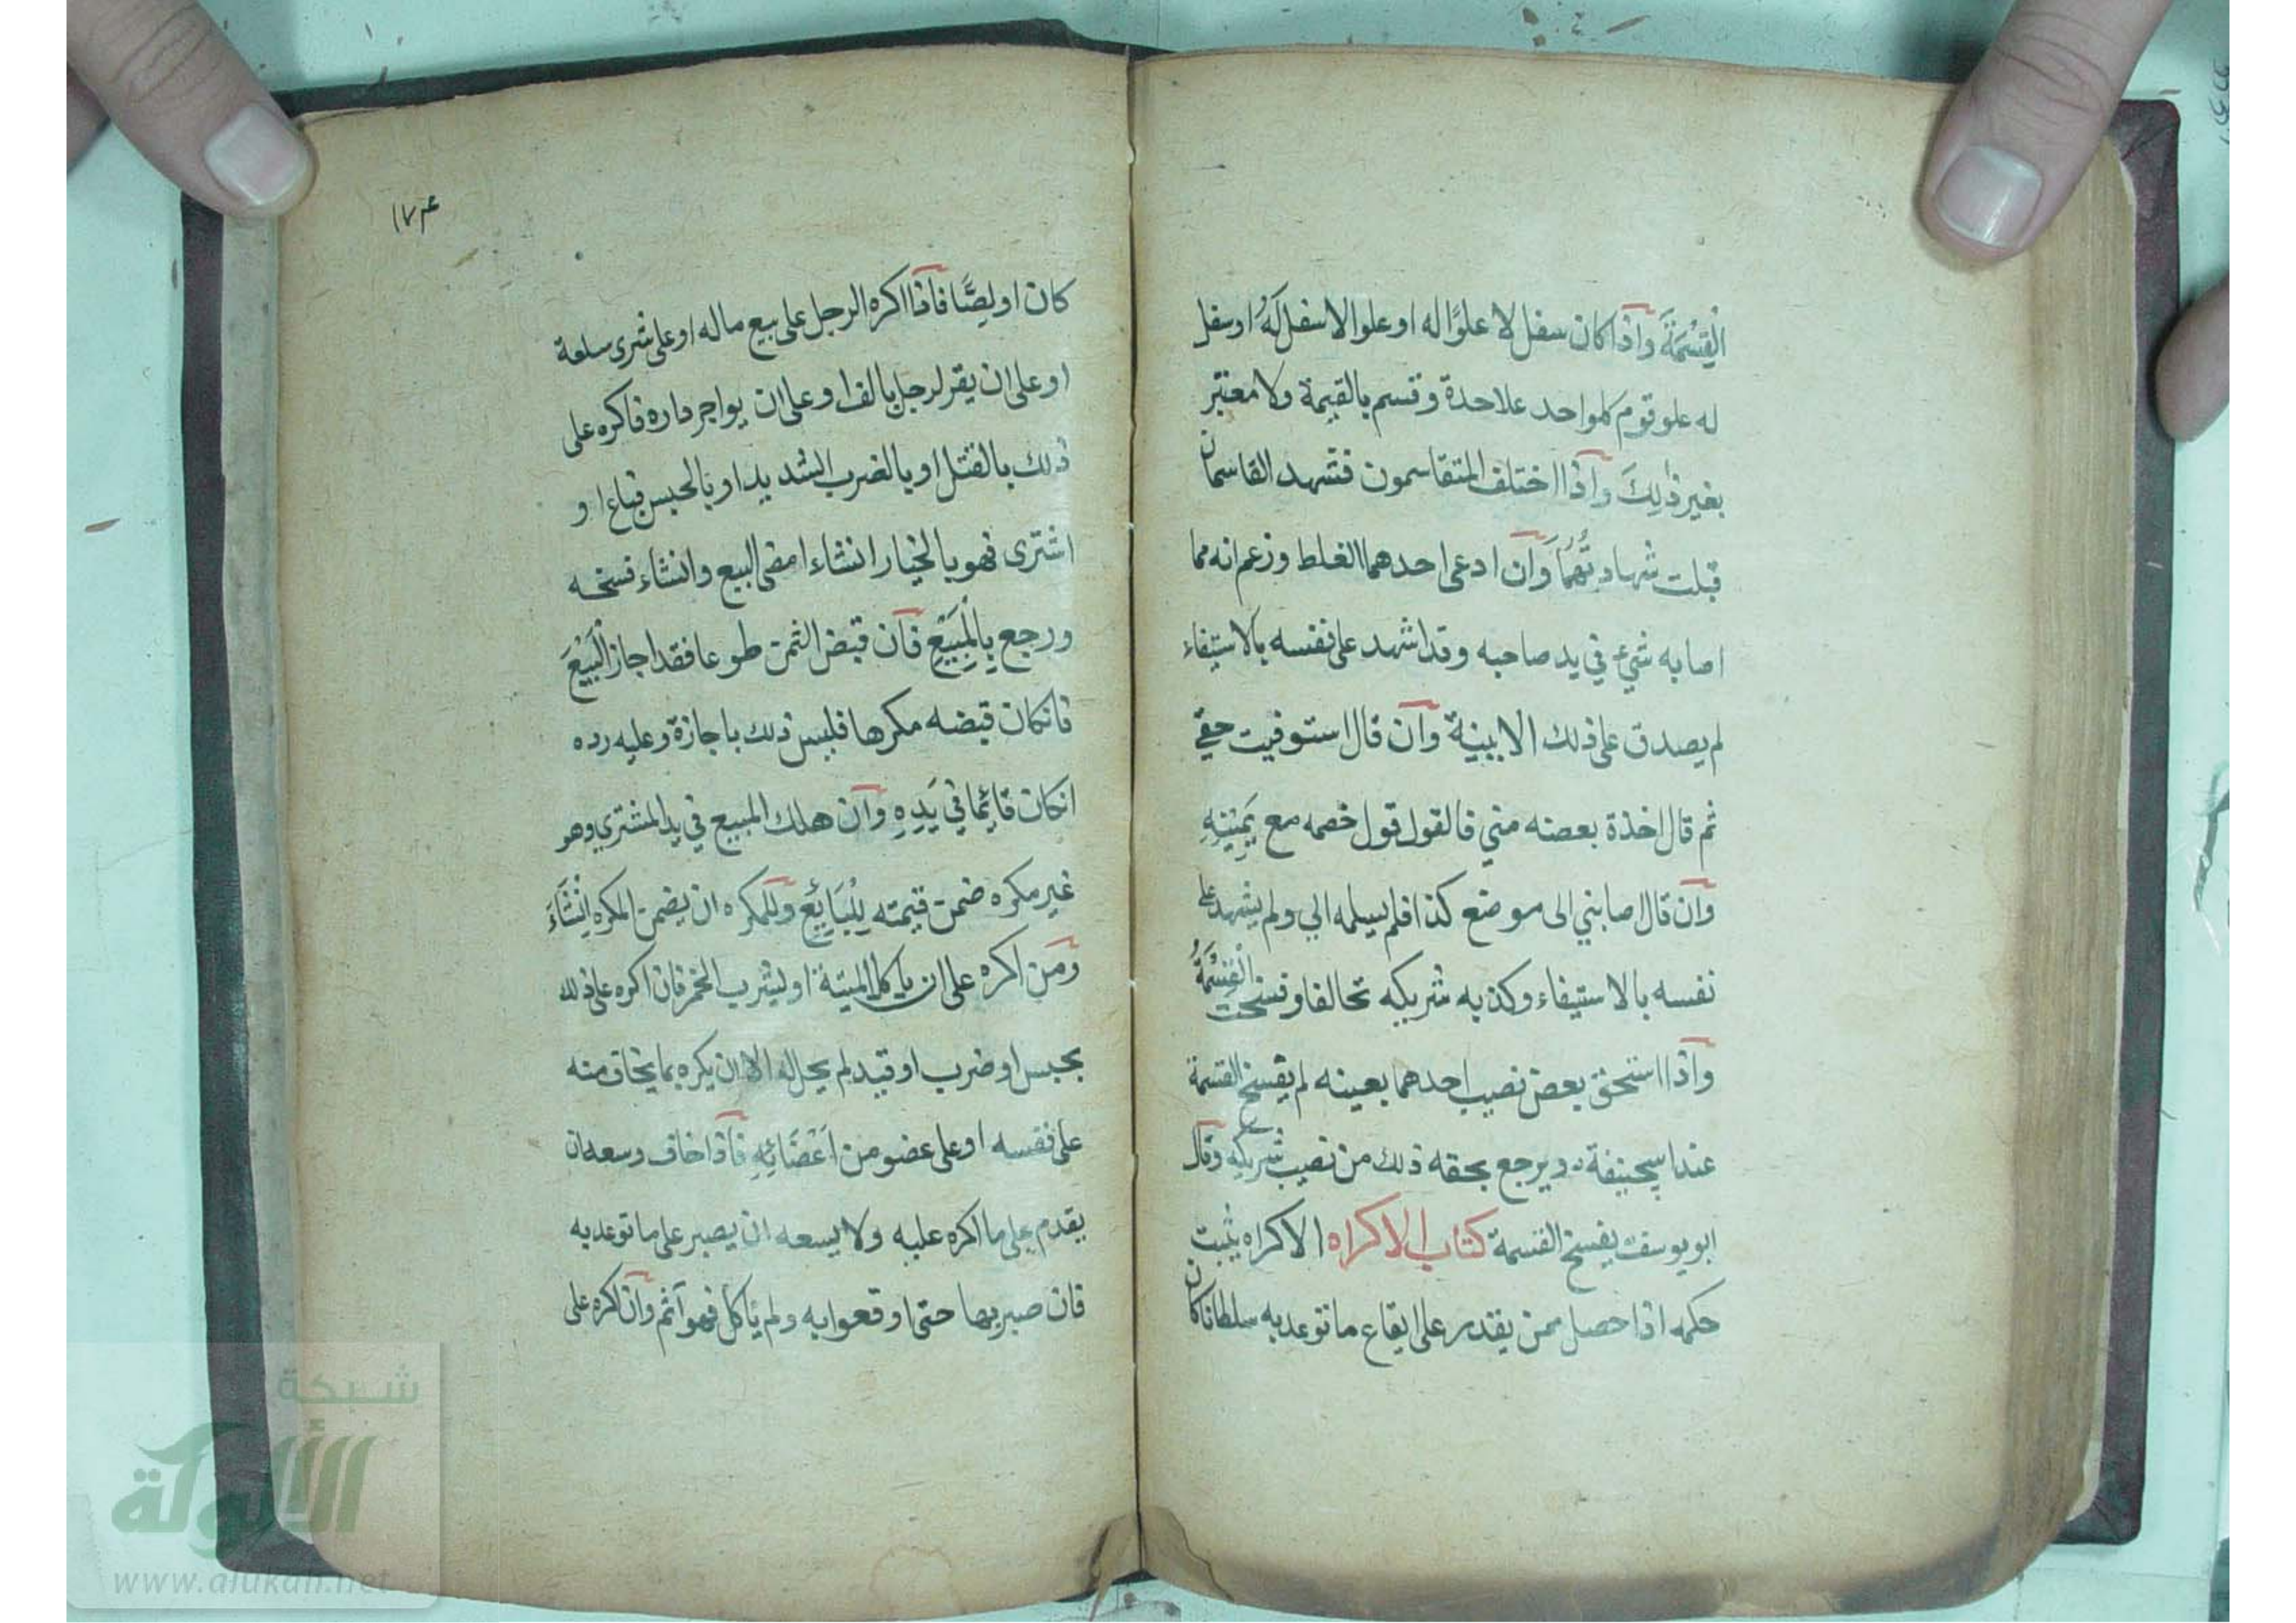 الْقِسْمَةَ وَاذا كان سفل لا علوًا له او علوا لاسفل لَهُ او سفل
له علو قوم كلواحد علاحدة وقسم بالقيمة ولا معتبر
بغير ذٰلِكَ وَاذا اختلف المتقاسمون فتشهد القاسمان
قبلت شهادتُهُمَا وَان ادعى احدهما الغلط وزعم انه مما
اصابه شيء في يد صاحبه وقد اشهد على نفسه بالاستيفاء
لم يصدق على ذلك الا ببينة وَان قال استوفيت حقي
ثم قال اخذة بعضه مني فالقول قول خصمه مع يَمِيْنِهِ
وَان قال اصابني الى موضع كذا فلم يسلمه الي ولم يشهد على
نفسه بالاستيفاء وكذبه شريكه تحالفا وفسخت الْقِسْمَةُ
وَاذا استحق بعض نصيب احدهما بعينه لم يفسخ القسمة
عند ابيحنيفة ويرجع بحقه ذلك من نصيب شريكِهِ وَقال
ابو يوسف يفسخ القسمة كتاب الاكراه الاكراه يثبت
حكمه اذا حصل ممن يقدر على ايقاع ما توعد به سلطانا كان
١٧٣
كان او لِصًّا فَاذا اكره الرجل على بيع ماله او على شرى سلعة
او على ان يقر لرجل بالف او على ان يواجر داره فاكره على
ذلك بالقتل او بالضرب الشديد او بالحبس فباع او
اشترى فهو بالخيار انشاء امضى البيع وانشاء فسخه
ورجع بِالْمَبِيْعِ فَان قبض الثمن طوعا فقد اجاز الْبَيْعَ
فانكان قبضه مكرها فليس ذلك باجازة وعليه رده
انكان قائِما في يَدِهِ وَان هلك المبيع في يد المشتري وهو
غير مكره ضمن قيمته لِلْبَايِعِ وَللمكره ان يضمن المكره اِنْشَاءَ
وَمَن اكره على ان ياكل الميتة او يشرب الخمر فان اكره على ذلك
بحبس او ضرب او قيد لم يحل له الا ان يكره بما يخاف منه
على نفسه او على عضو من اَعْضَائِهِ فَاذا خاف وسعه ان
يقدم على ما اكره عليه ولا يسعه ان يصبر على ما توعد به
فان صبر بها حتى اوقعوا به ولم ياكل فهو آثم وَان اكره على
شبكة
الألوكة
www.alukah.net